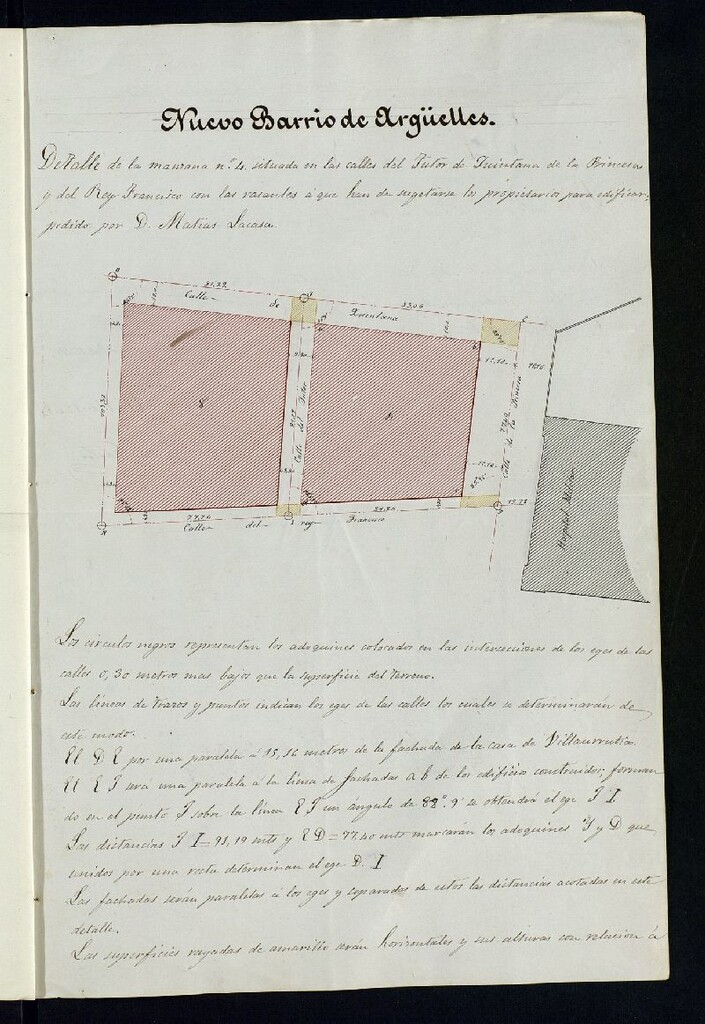 Nuevo Barrio de Argüelles.
Detalle de la manzana nº 4. situada en las calles del Tutor de Quintana de la Princesa
y del Rey Francisco con las rasantes á que han de sugetarse los propietarios para edificar,
pedido por D. Matias Lacasa.
Calle de Quintana
Calle del Tutor
Calle de la Princesa
Calle del rey Francisco
Hospital Militar
Los circulos negros representan los adoquines colocados en las intersecciones de los eges de las
calles 0,30 metros mas bajos que la superficie del terreno.
Las lineas de trazos y puntos indican los eges de las calles los cuales se determinarán de
este modo.
El D E por una paralela á 15,16 metros de la fachada de la casa de Villaurrutia.
El E J será una paralela á la linea de fachadas a b de los edificio construidos; forman
do en el punto J sobre la linea E J un angulo de 9' se obtendrá el ege J I
Las distancias J I = 93,19 mts y E D = 77.40 mts marcarán los adoquines Y y D que
unidos por una recta determinan el ege D. I
Las fachadas serán paralelas á los eges y separadas de estos las distancias acotadas en este
detalle.
Las superficies rayadas de amarillo serán horizontales y sus alturas con relacion á